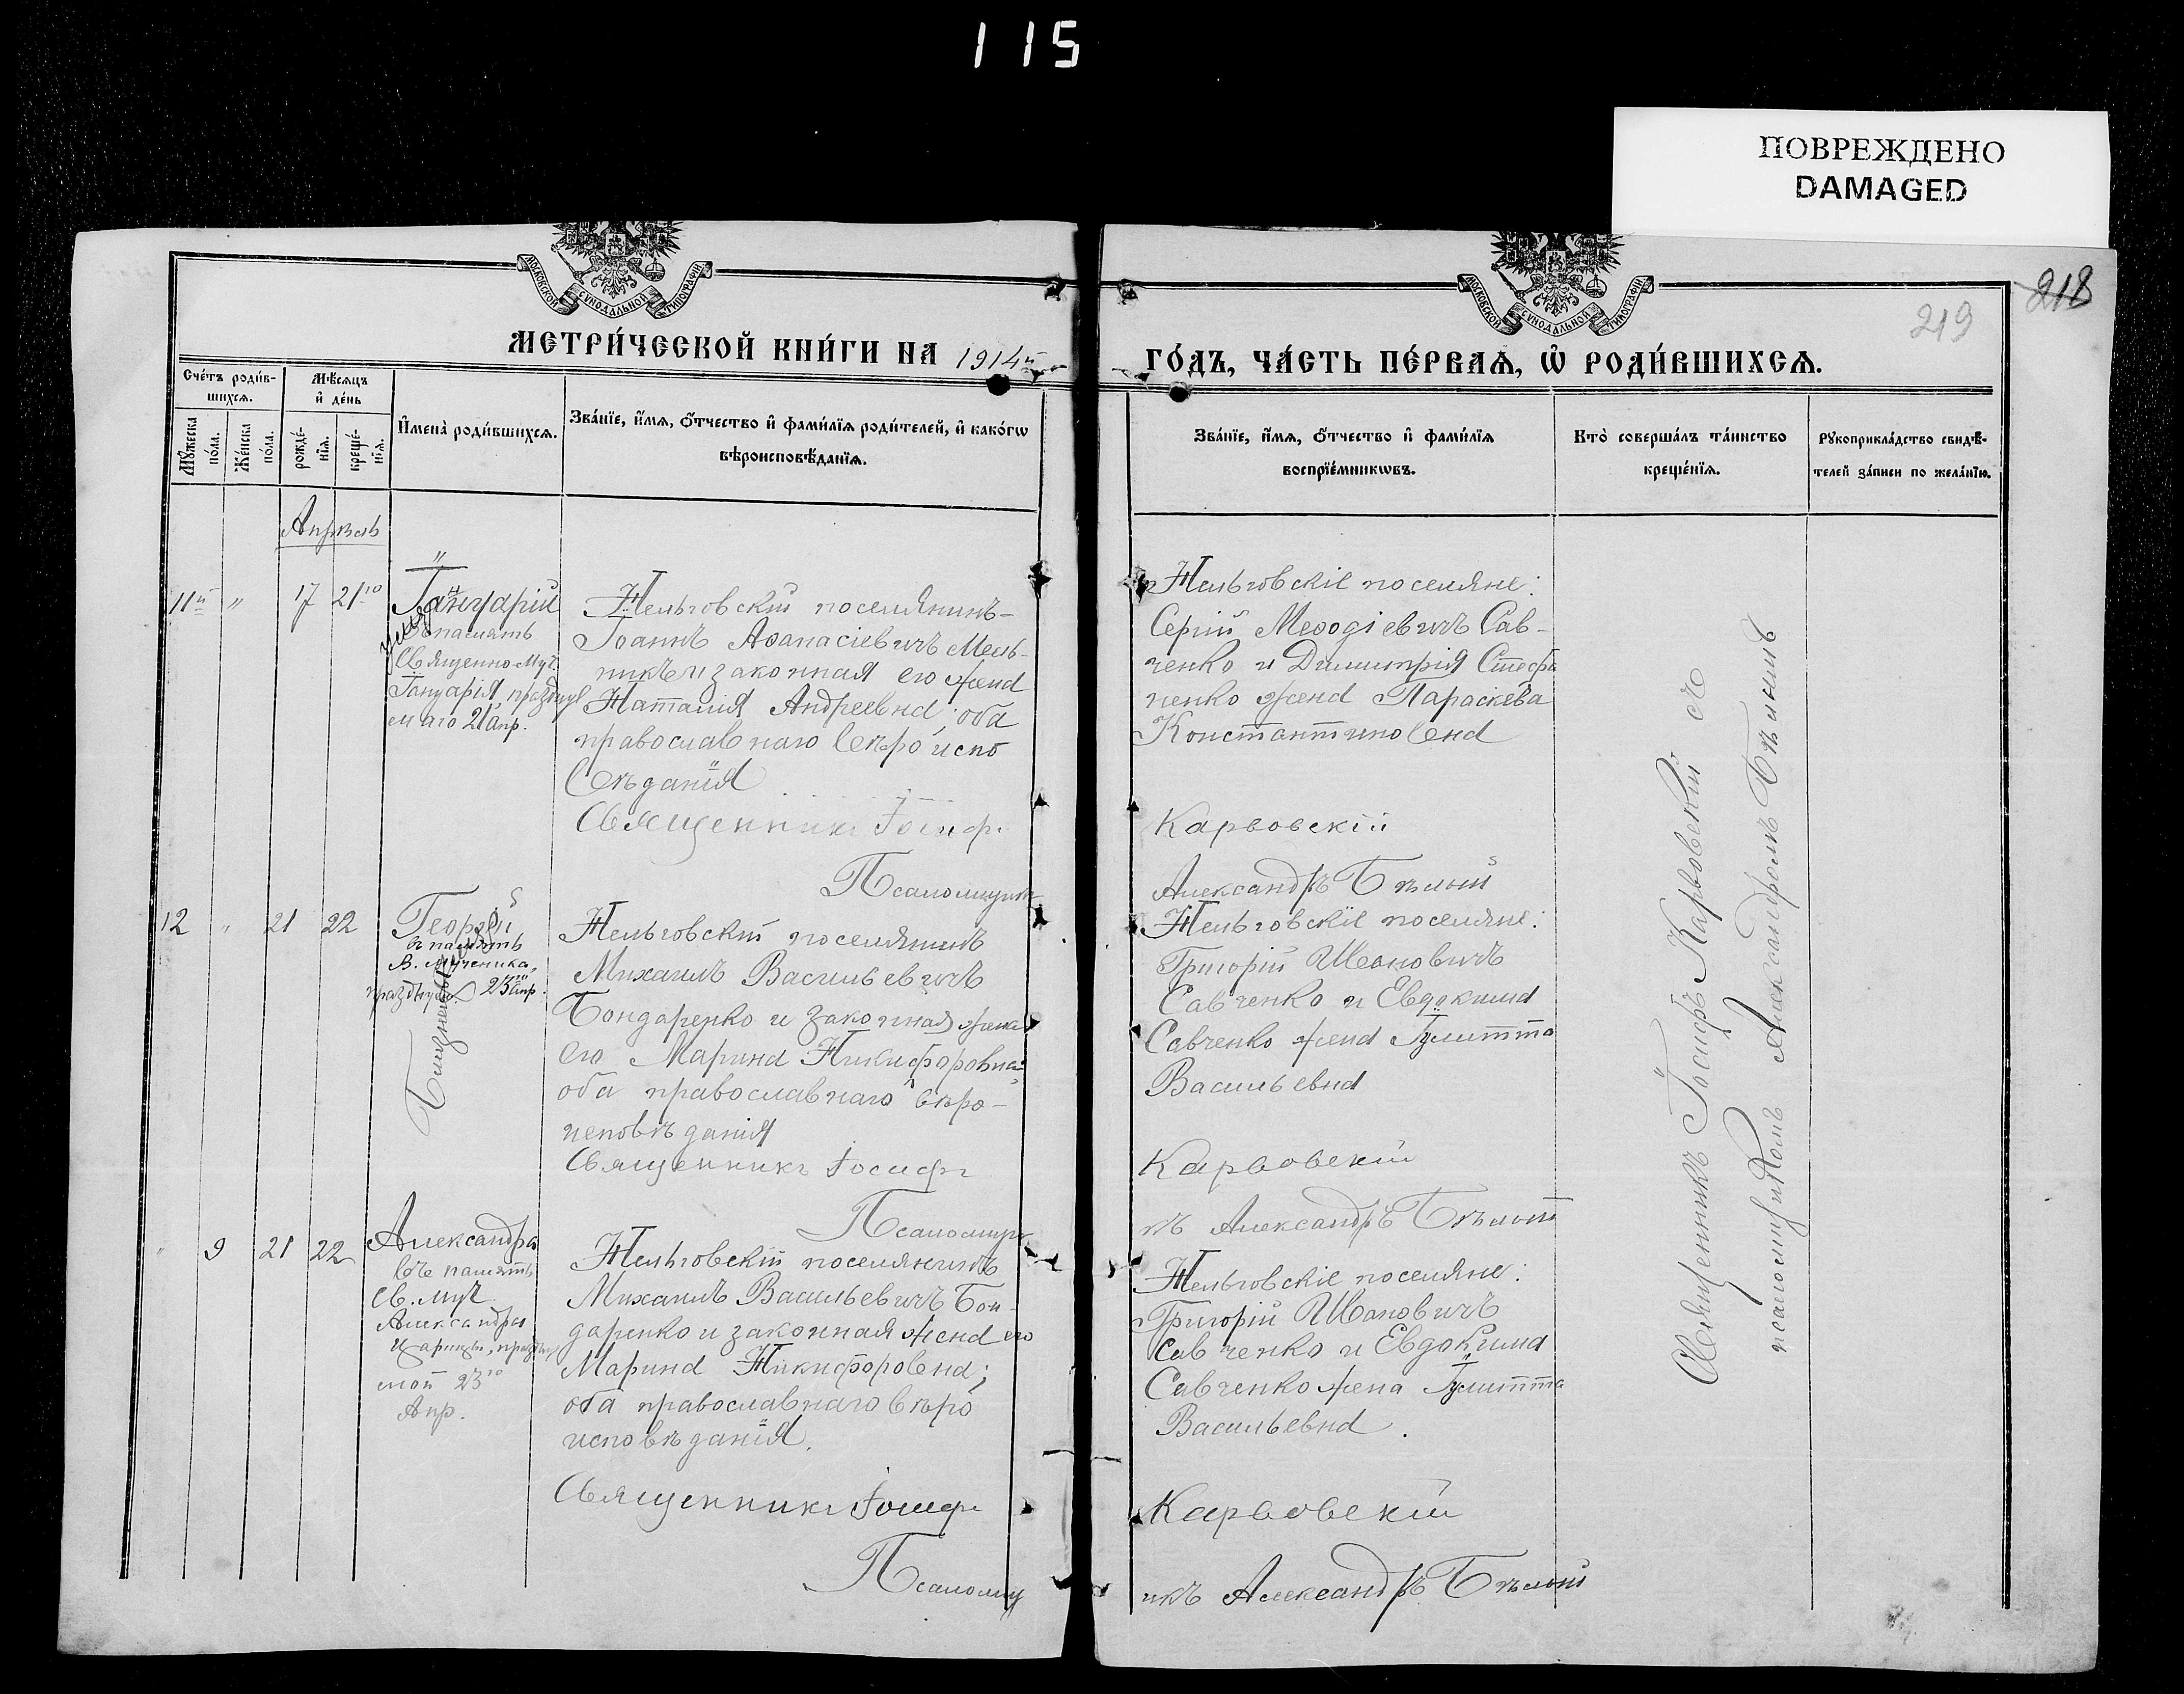 115
ПОВРЕЖДЕНО
DAMAGED
МОСКОВСКОЙ СѴНОДАЛЬНОЙ ТИПОГРАФІИ
МОСКОВСКОЙ СѴНОДАЛЬНОЙ ТИПОГРАФІИ
218
219
МЕТРИ́ЧЕСКОЙ КНИ́ГИ НА 1914й
ГО́ДЪ, ЧА́СТЬ ПЕ́РВАѦ, Ѡ҆ РОДИ́ВШИХСѦ.
Сче́тъ роди́в-
шихсѧ.
Мѣ́сѧцъ
и҆ де́нь
Мꙋ́жеска
по́ла.
Же́нска
по́ла.
рожде́-
нїѧ.
креще́-
нїѧ.
И҆мена̀ роди́вшихсѧ.
Зва́нїе, и҆́мѧ, ѻ҆́тчество и҆ фами́лїѧ роди́телей, и҆ како́гѡ
вѣроисповѣ́данїѧ.
Зва́нїе, и҆́мѧ, ѻ҆́тчество и҆ фами́лїѧ
воспрїе́мникѡвъ.
Кто̀ соверша́лъ та́инство
креще́нїѧ.
Рꙋкоприкла́дство свидѣ́-
телей за́писи по жела́нїю.
Апрѣль
11й " 17 21го
Іануарій
въ память
Священно-Муч.
Іануарія, праздуе
маго 21 Апр.
Нельговскій поселянинъ-
Іоаннъ Аѳанасіевичъ Мель-
никъ и законная его жена
Наталія Андреевна; оба
православнаго вѣро испо
вѣданія
Священникъ Іосифъ
Псаломщикъ
Нельговскіе поселяне:
Сергій Меѳодіевичъ Сав-
ченко и Димитрія Стефа
ненко жена Параскева
Константиновна
Карвовскій
Александръ Бѣлый
12 " 21 22
Георгій
въ память
В. Мученика,
празднуем. 23 Апр.
Близнецы
Нельговскій поселянинъ
Михаилъ Васильевичъ
Бондаренко и законная жена
его Марина Никифоровна;
оба православнаго вѣро-
исповѣданія
Священникъ Іосифъ
Псаломщи
Нельговскіе поселяне:
Григорій Ивановичъ
Савченко и Евдокима
Савченко жена Іулитта
Васильевна
Карвовскій
къ Александръ Бѣлый
" 9 21 22
Александра
въ память
св. муч.
Александры
Царицы, праздну
мой 23го
Апр.
Нельговскій поселянинъ
Михаилъ Васильевичъ Бон-
даренко и законная жена его
Марина Никифоровна;
оба православнаго вѣро
исповѣданія.
Священникъ Іосифъ
Псаломщ
Нельговскіе поселяне:
Григорій Ивановичъ
Савченко и Евдокима
Савченко жена Іулитта
Васильевна.
Карвовскій
икъ Александръ Бѣлый
Священникъ Іосифъ Карвовскій съ
псаломщикомъ Александромъ Бѣлымъ